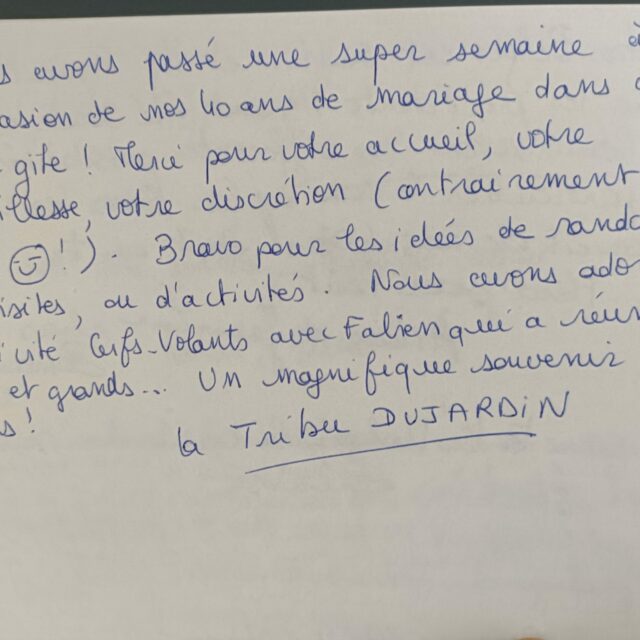 s avons passé une super semaine
asion de nos 40 ans de mariage dans
gite ! Merci pour votre accueil, votre
illesse, votre discrétion (contrairement
☺ ! ). Bravo pour les ideés de rando
isites, ou d'activités. Nous avons ado
ivité Cerfs-Volants avec Fabien qui a réun
et grands... Un magnifique souvenir
s !
la Tribu DUJARDIN